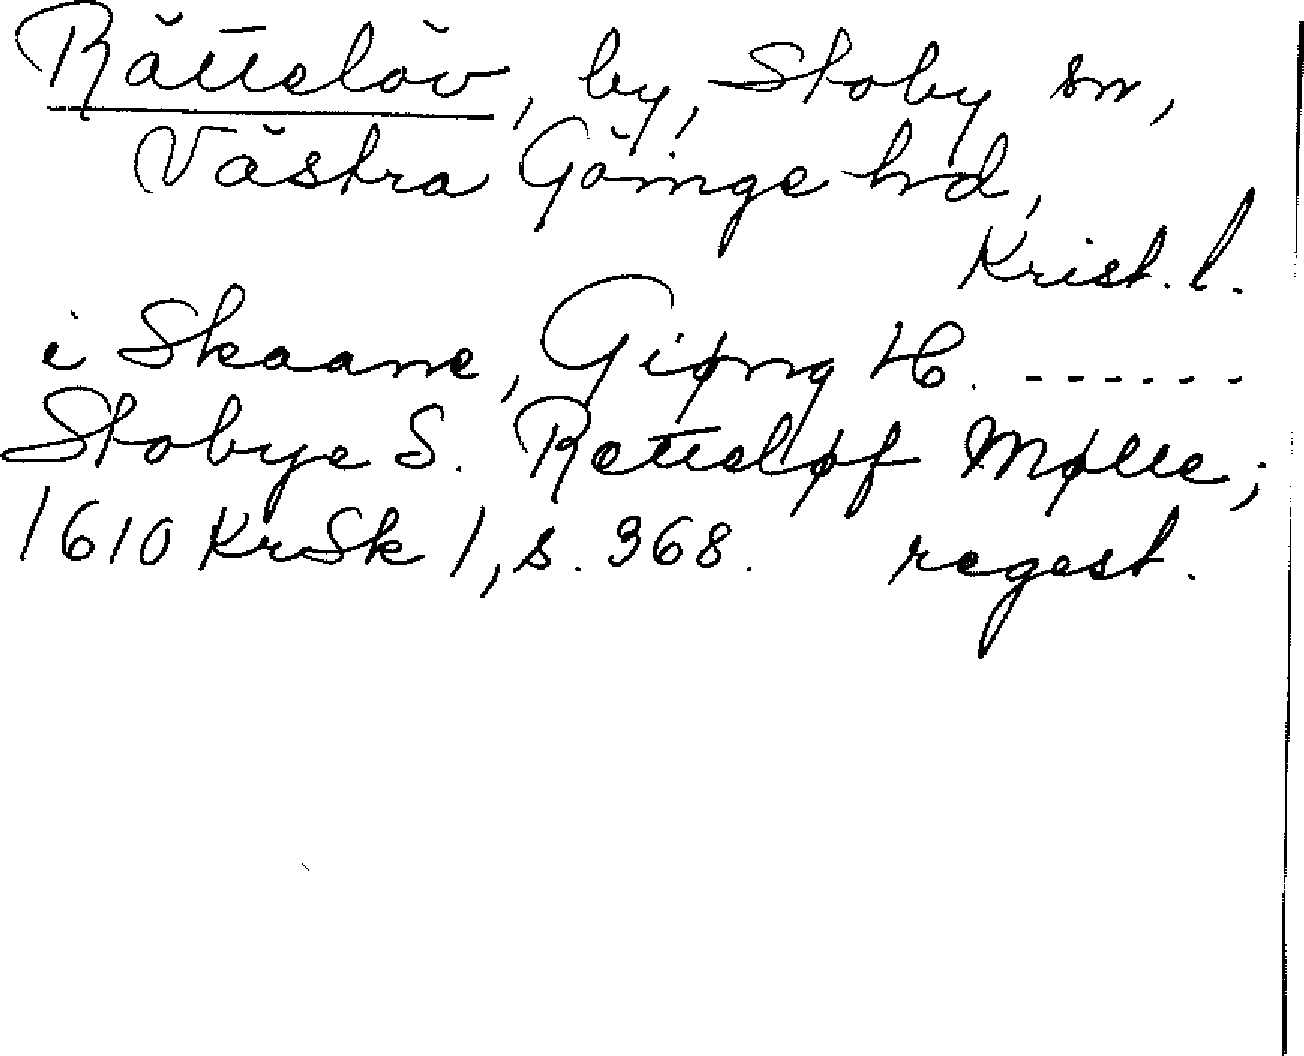 Rättelöv, by, Stoby sn,
Västra Göinge hd,
Krist. l.
i Skaane, Giøng H. ------
Stobye S. Retteløf Mølle;
1610 KrSk 1, s. 368. regest.